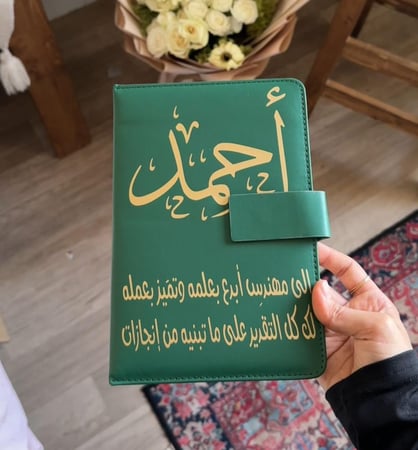 أحمد
إلى مهندس أبدع بعلمه وتميز بعمله
لك كل التقدير على ما تبنيه من إنجازات